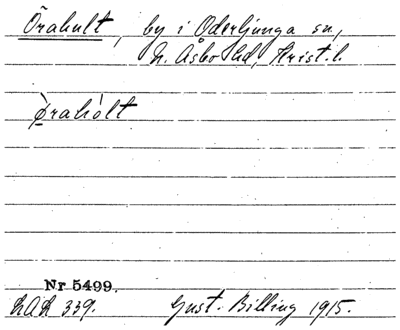 Örahult, by i Oderljunga sn,
N. Åsbo hd, Krist. l.
Ǿrahòlt
Nr 5499.
LAL 339. Gust. Billing 1915.